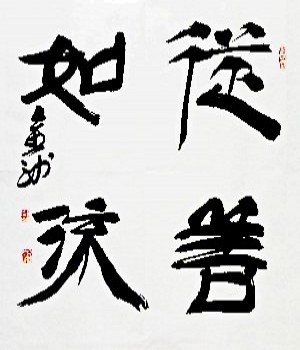 從善
如流